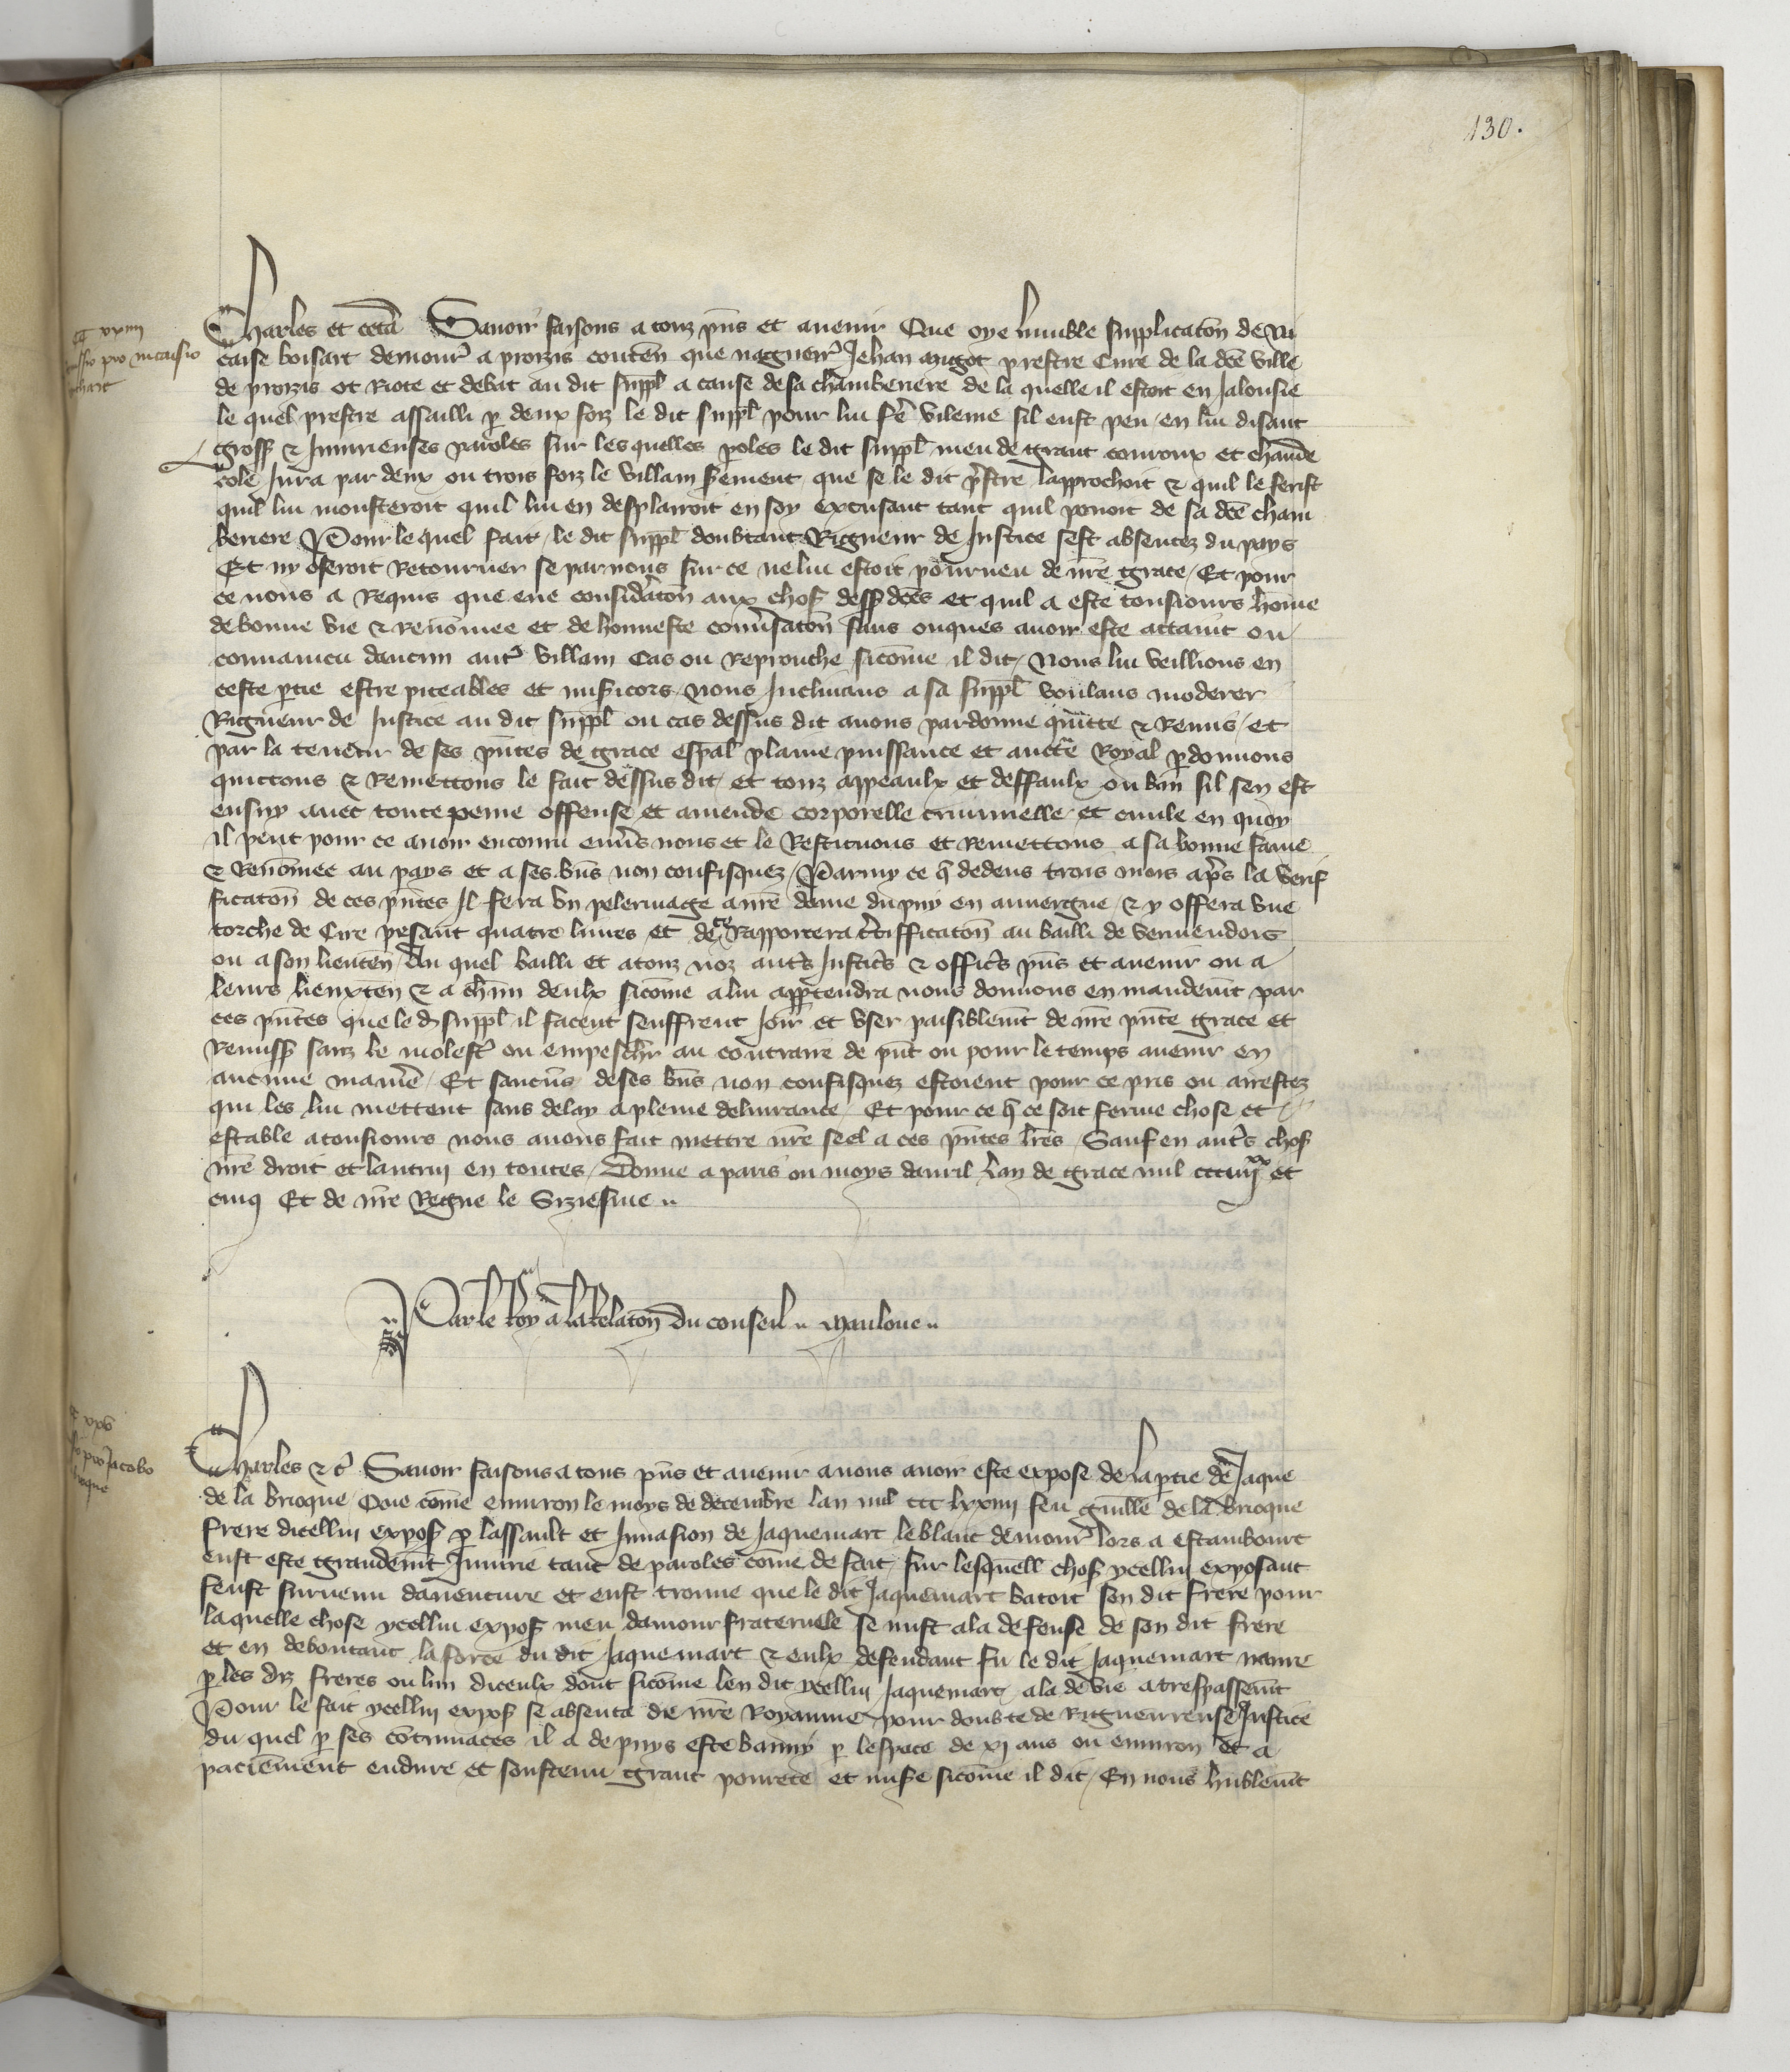 130.
Charles et cetã Sauoir faisons a touz pñs et auenir Que oye lumble supplicatoñ de Ni
caise boisart demour̃ a proizis conteñ que nagueir̃ Jehan angot prestre Cure de la dcẽ ville
de proizis ot Riote et debat au dit suppł a cause de sa chamberiere de la quelle il estoit en Jalousie
le quel prestre assailli p deux foiz le dit suppł pour lui fẽ vilenie sil eust peu / en lui disant
gross̃ & Iniurieuses paroles sur lesquelles poles le dit suppł meu de grant courroux et chaude
cole Jura par deux ou trois foiz le villain serment que se le dit p̃stre lapprochoit & quil le ferist
quil lui monsteroit quil lui en desplairoit en soy excusant tant quil pouoit de sa dcẽ cham
beriere Pour le quel fait / le dit suppł doubtant Rigueur de Justice sest absentez du pays
Et ny oseroit Retourner se par nous sur ce ne lui estoit pourueu de nr̃e grace / Et pour
ce nous a Requis que eue consid̃atoñ aux chos̃ dess̃ dcẽs et quil a este tousiours hom̃e
de bonne vie & renom̃ee et de honneste conũsatoñ sans onques auoir este attaint ou
conuaincu daucun aut̃ villain Cas ou Reprouche sicom̃e il dit / Nous lui veillions en
ceste p̱tie estre piteables et mis̃icors / Nous Inclinans a sa suppł voulans moderer
Rigueur de Justice au dit suppł ou cas dessus dit auons pardonne quitte & Remis / et
par la teneur de ses pñtes de grace esp̃al plaine puissance et auctẽ Royal pdonnons
quictons & Remettons le fait dessus dit / et touz appeaulx et deffaulx ou ban sil sen est
ensuy auec toute peine offense et amende corporelle criminelle / et ciuile en quoy
il peut pour ce auoir encouru enũs nous et le Restituons et remettons a sa bonne fame
& Renom̃ee au pays et a ses bñs non confisquez / Parmy ce q̃ dedens trois mois ap̃s la verif
ficatoñ de ces pñtes Il fera vn pelerinage a nr̃e dame du puy en auuergne / & y offera vne
torche de Cire pesant quatre liures et de ce Rapportera c̃tifficatoñ au bailli de vermendois
ou a son lieuteñ / Au quel bailli et a touz noz aut̃s Justic̃s & offic̃s pñs et auenir ou a
leurs lieuxteñ & a chũn deulx sicom̃e a lui app̱tendra nous donnons en mandem̃t par
ces pñtes que le d̃ suppł il facent seuffrent Joir̃ et vser paisiblem̃t de nr̃e pñte grace et
Remiss̃ sanz le molest̃ ou empeschr̃ au contraire de pñt ou pour le temps auenir en
aucune manier̃e / Et sauctũs de ses bñs non confisquez estoient pour ce pris ou arrestez
qui les lui mettent sans delay a pleine deliurance / Et pour ce q̃ ce soit ferme chose et
estable a tousiours nous auons fait mettre nr̃e seel a ces pñtes lr̃es / Sauf en aut̃s chos̃
nr̃e droit et lautrui en toutes / Donne a paris ou moys dauril lan de grace mil ccciiij xx et
cinq Et de nr̃e Regne le Siziesme ..
Par le Roy a la Relatoñ du conseil .. Manloue ..
Charles & c̃ Sauoir faisons a tous pñs et auenir a nous auoir este expose de la p̱tie de Jaque
de la brioque / Que com̃e enuiron le moys de decembre lan mil ccc lxxiiij feu guillẽ de la brioque
frere dicellui expos̃ p lassault et Inuasion de Jaquemart leblanc demour̃ lors a estambourc
eust este grandem̃t Iniurie tant de paroles com̃e de fait / sur lesquell chos̃ ycellui exposant
seust suruenu dauenture et eust trouue que le dit Jaquemart batoit son dit frere pour
laquelle chose ycellui expos̃ meu damour fraternele se mist a la defense de son dit frere
et en deboutant la force du dit Jaquemart & eulx defendant fu le dit Jaquemart naure
p les diz freres ou lun diceulx dont sicom̃e len dit ycellui Jaquemart a la de vie a trespassem̃t
Pour le fait ycellui expos̃ se absenta de nr̃e Royaume pour doubte de Rigueureuse Justice
du quel p ses contumaces il a depuys este banny p lespace de xj ans ou enuiron et a
paciem̃ent endure et soustenu grant pourete et mis̃e sicom̃e il dit / En nous hũblem̃t